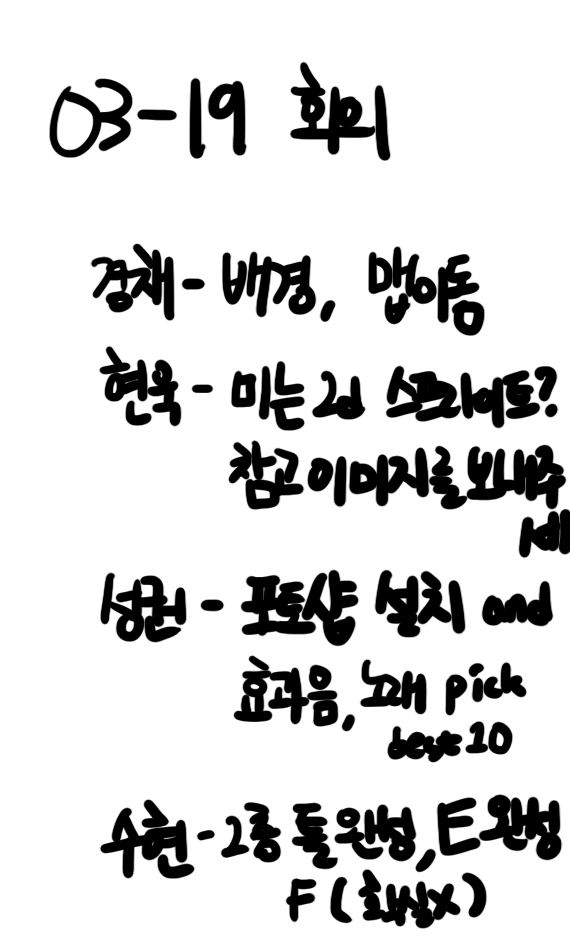 03-19 회의
경채 - 배경, 맵이동
현욱 - 미는 2d 스프라이트?
참고 이미지를 보내주
세
성권 - 포토샵 설치 and
효과음, 노래 pick
best 10
수현 - 2층 돌 완성, E 완성
F (확실X)